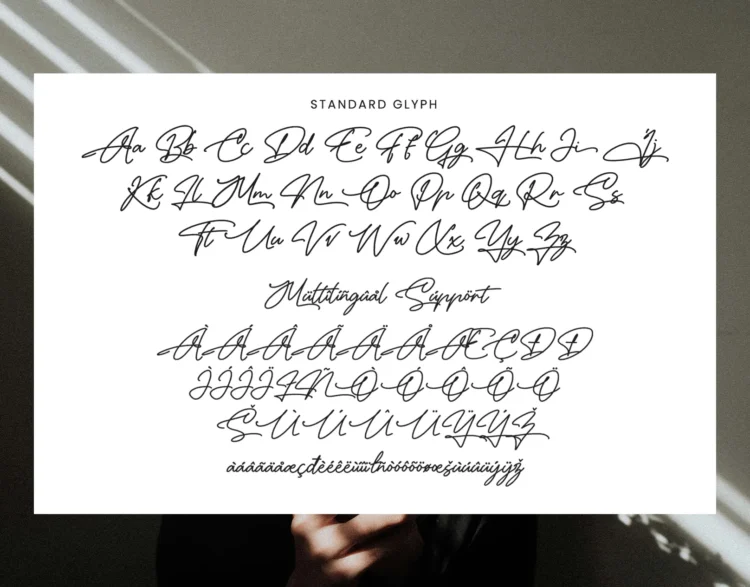 STANDARD GLYPH
Aa Bb Cc Dd Ee Ff Gg Hh Ii Jj
Kk Ll Mm Nn Oo Pp Qq Rr Ss
Tt Uu Vv Ww Xx Yy Zz
Mültitíñgûål Súppört
À Á Â Ã Ä Å Æ Ç Ð Đ
Ì Í Î Ï Ł Ñ Ò Ó Ô Õ Ö
Š Ù Ú Û Ü Ÿ Ý Ž
àáâãäåæçđèéêëìíîïłñòóôõöøœšùúûüýÿž